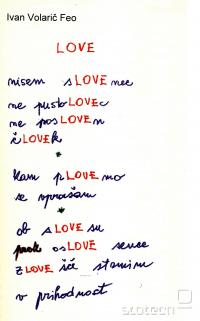 Ivan Volarič Feo
LOVE
nisem sLOVEnec
ne pustoLOVEc
ne posLOVEn
čLOVEk
*
kam pLOVEmo
se vprašam
*
ob sLOVEsu
osLOVE sence
zLOVEšče
v prihodnost